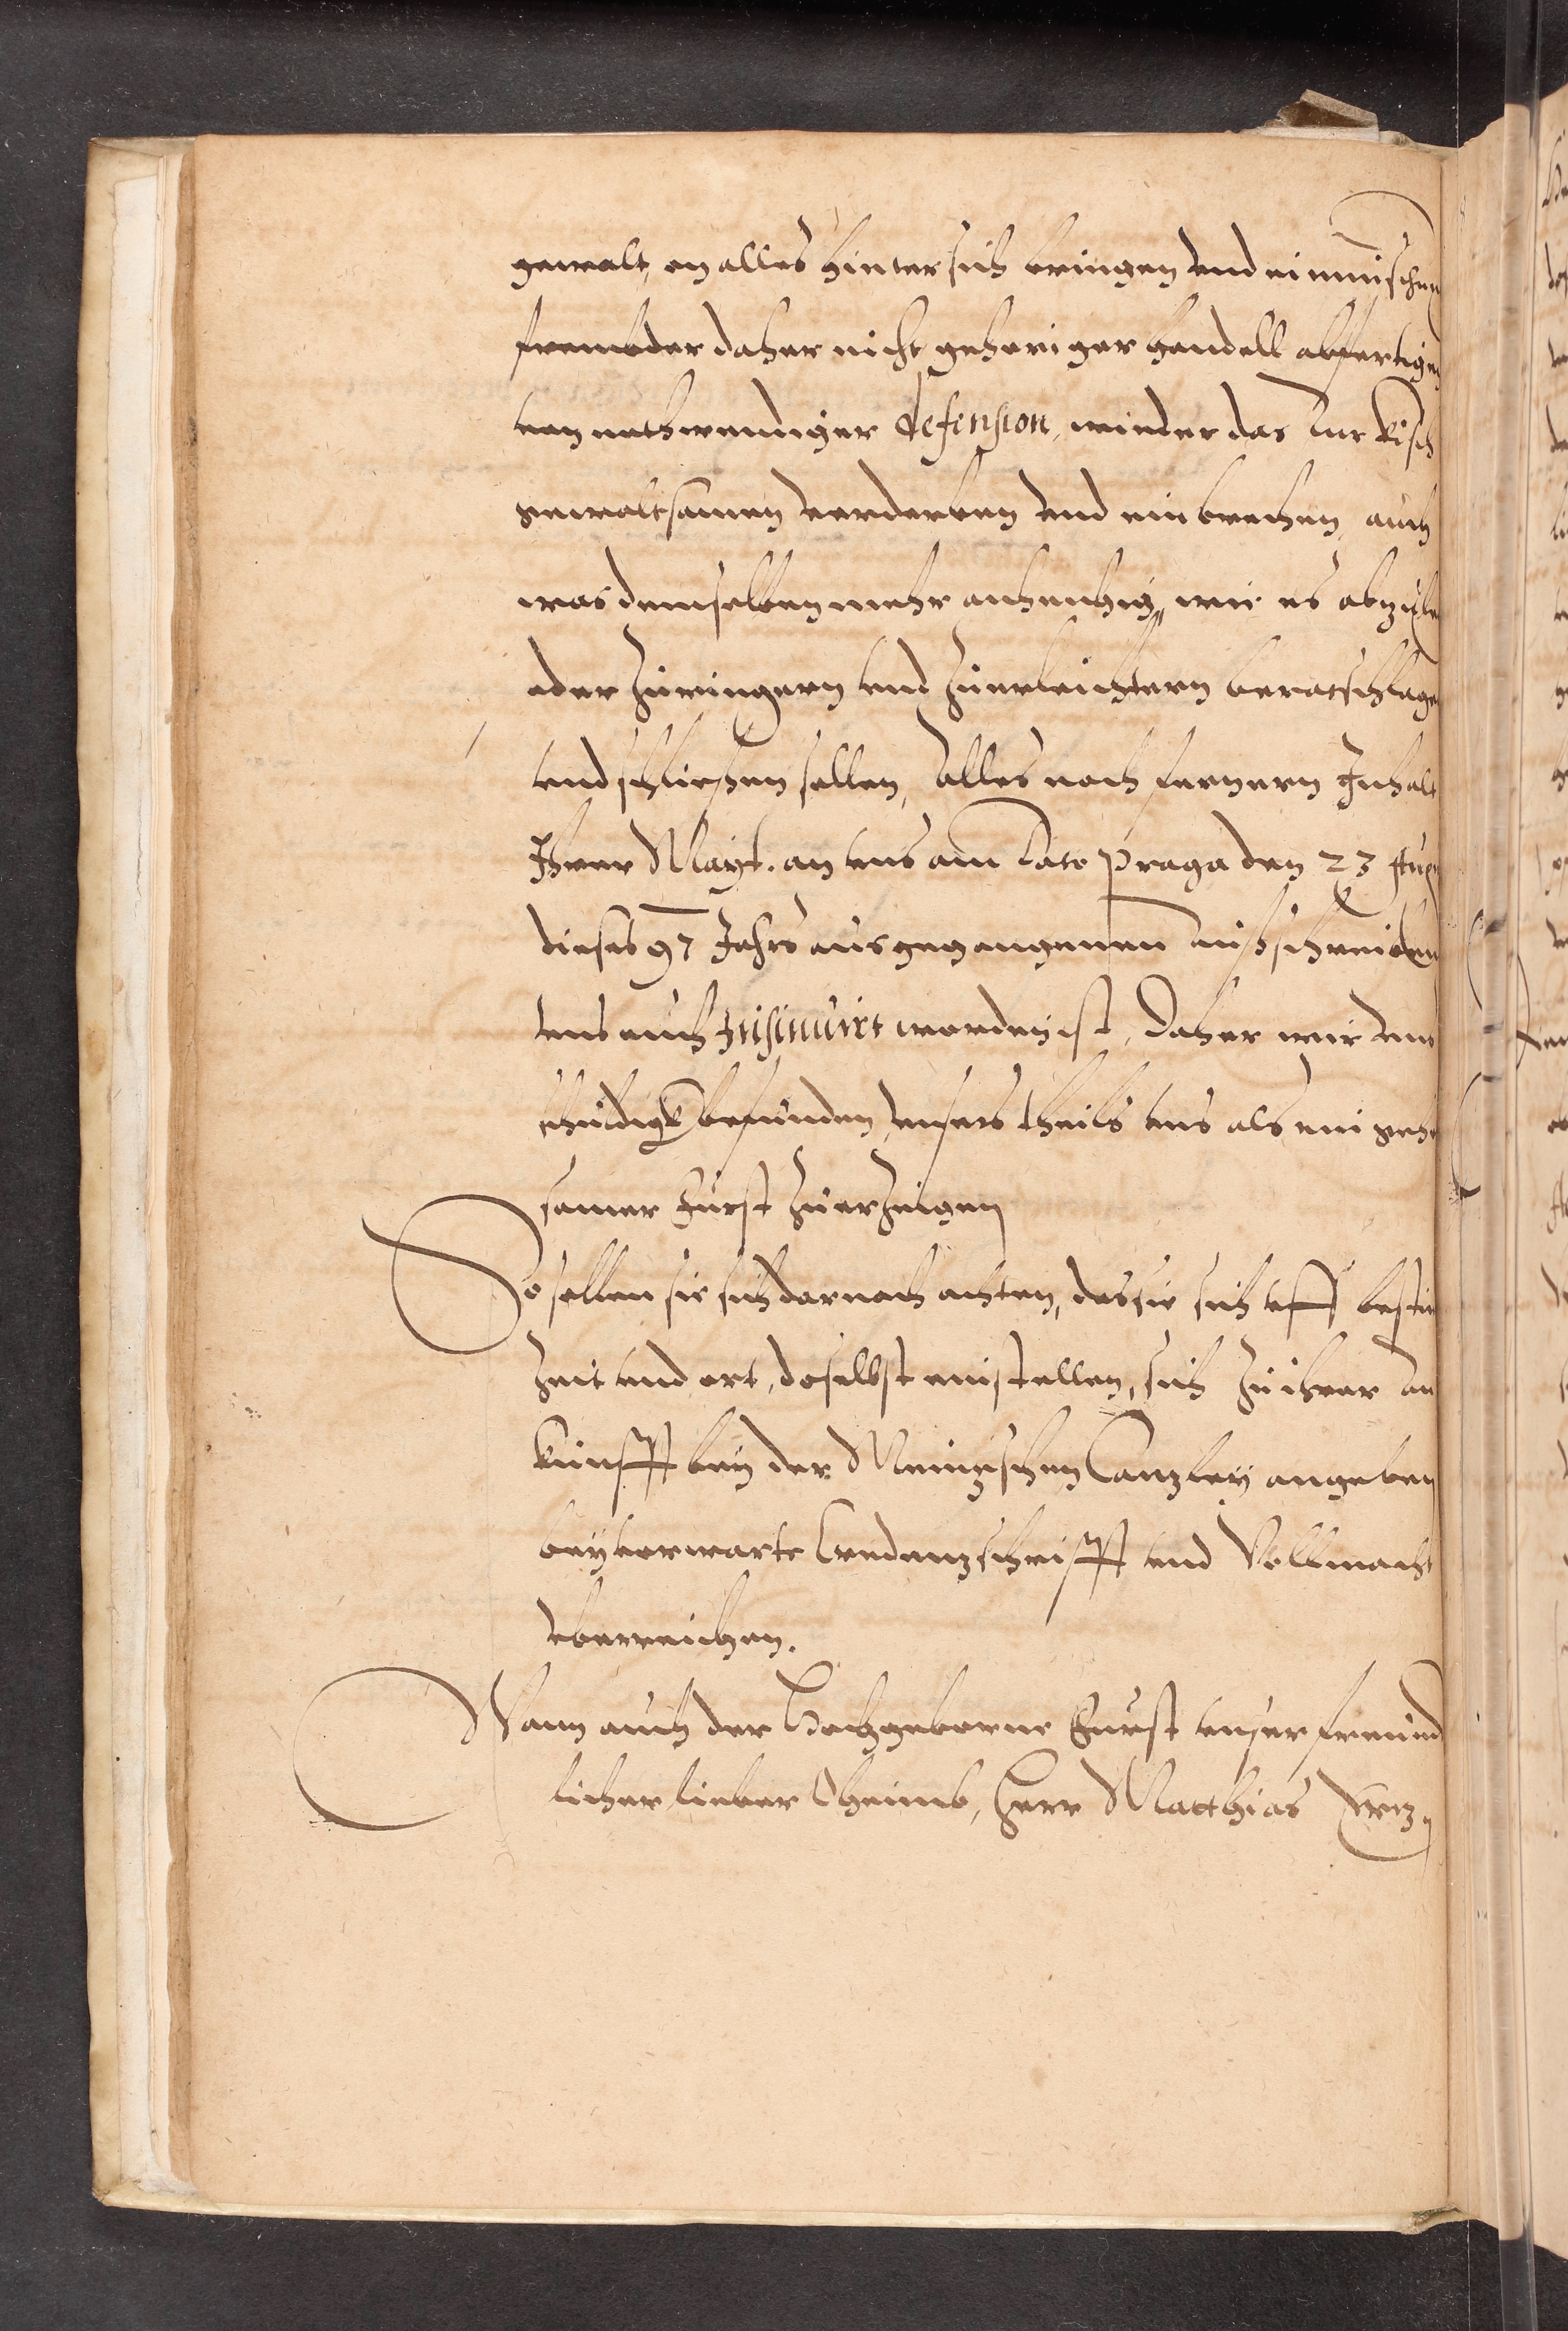 gewalt, on alles hinter sich bringen vnd einmischen
frembder daher nicht geheriger hendell abfertigen
von nothwendiger defension, wieder das Turkisch
gewaltsamen verderben vnd einbrechen, auch
was demselben mehr anhenhig, wie es abzu
oder zuringern vnd zuerleichtern beratschlagen
vnd schliessen sollen, Alles nach fernern Inhalt
Ihrer Mayt. an vns am dato Praga den 23 Augu
dieses 97 Jahrs ausgegangenem ausschreiben
vns auch Insinuirt worden ist, Daher wir vns
schuldigk befunden, vnsers theils vns als ein geho
samer Furst zuerzeigen
So sollen sie sich darnach achten, das sie sich vff besti
zeit vnd ort, doselbst einstellen, sich zu ihrer an
kunfft bey der Meintzischen Cantzley angeben
beyverwarte Credentzschrifft vnd Vollmacht
vberreichen.
Wann auch der Hochgeborne Furst vnser freund
licher lieber Oheimb, Herr Matthias Ertz